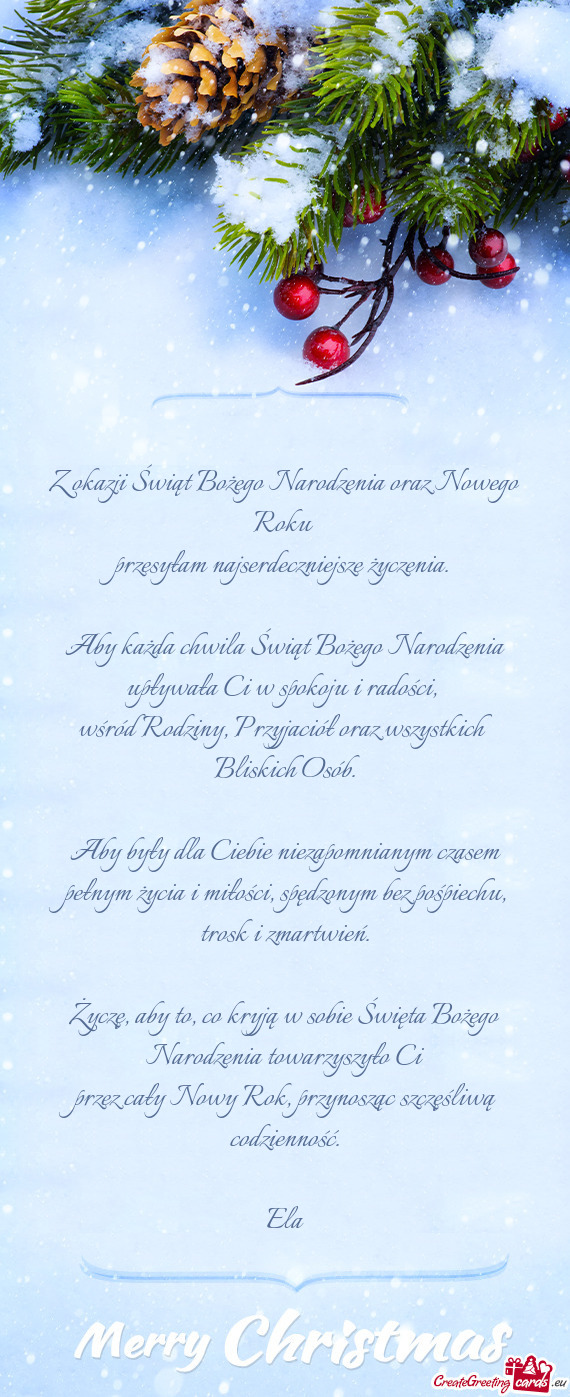 Z okazji Świąt Bożego Narodzenia oraz Nowego
Roku
przesyłam najserdeczniejsze życzenia.
Aby każda chwila Świąt Bożego Narodzenia
upływała Ci w spokoju i radości,
wśród Rodziny, Przyjaciół oraz wszystkich
Bliskich Osób.
Aby były dla Ciebie niezapomnianym czasem
pełnym życia i miłości, spędzonym bez pośpiechu,
trosk i zmartwień.
Życzę, aby to, co kryją w sobie Święta Bożego
Narodzenia towarzyszyło Ci
przez cały Nowy Rok, przynosząc szczęśliwą
codzienność.
Ela
Merry Christmas
CreateGreetingcards.eu